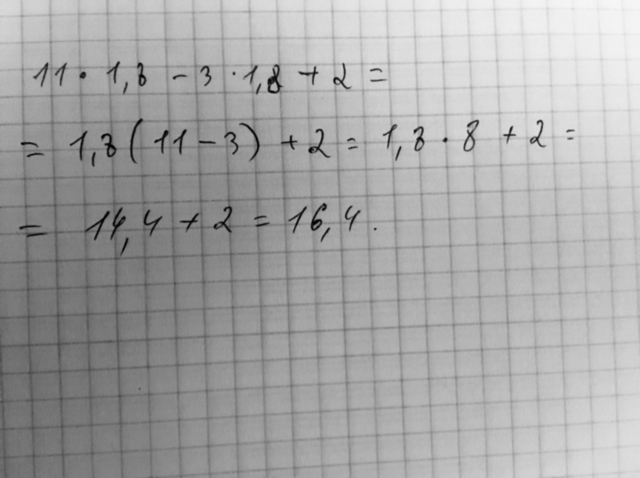 11 · 1,8 - 3 · 1,8 + 2 =
= 1,8 ( 11 - 3 ) + 2 = 1,8 · 8 + 2 =
= 14,4 + 2 = 16,4.